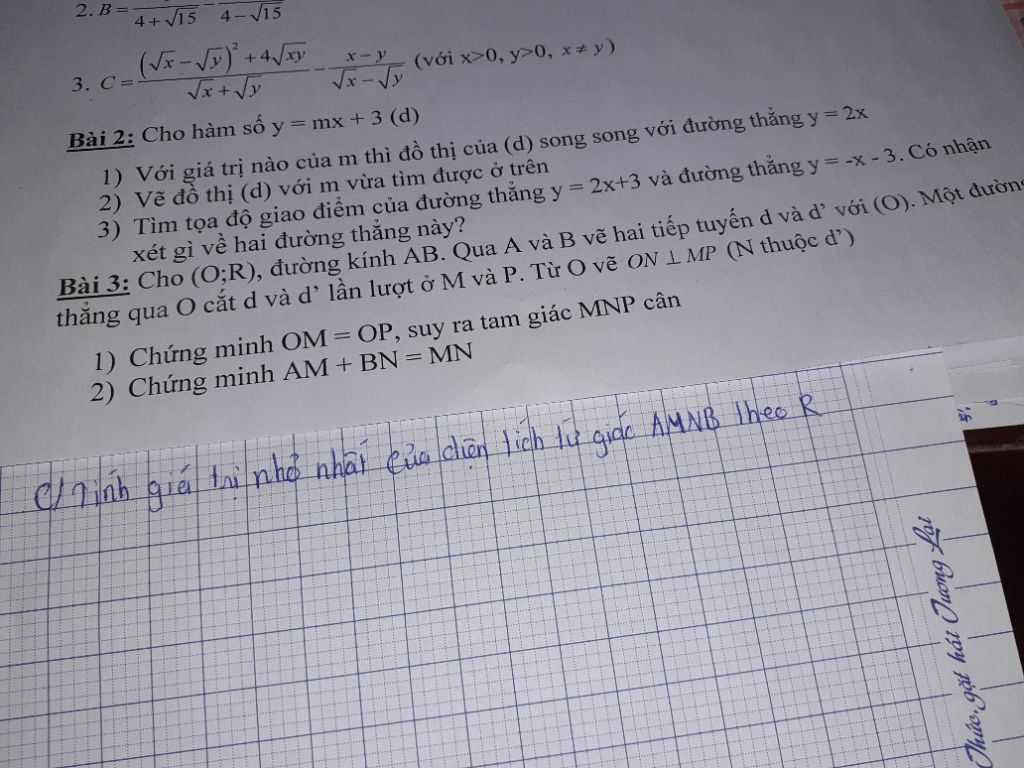 2. B = 4+√15 − 4−√15
3. C = ((√x − √y)² + 4√xy)/(√x + √y) − (x − y)/(√x − √y) (với x>0, y>0, x ≠ y)
Bài 2: Cho hàm số y = mx + 3 (d)
1) Với giá trị nào của m thì đồ thị của (d) song song với đường thẳng y = 2x
2) Vẽ đồ thị (d) với m vừa tìm được ở trên
3) Tìm tọa độ giao điểm của đường thẳng y = 2x+3 và đường thẳng y = -x - 3. Có nhận
xét gì về hai đường thẳng này?
Bài 3: Cho (O;R), đường kính AB. Qua A và B vẽ hai tiếp tuyến d và d' với (O). Một đường
thẳng qua O cắt d và d' lần lượt ở M và P. Từ O vẽ ON ⊥ MP (N thuộc d')
1) Chứng minh OM = OP, suy ra tam giác MNP cân
2) Chứng minh AM + BN = MN
c/ Tính giá trị nhỏ nhất của diện tích tứ giác AMNB theo R
Thức, gặt hái Tương Lai